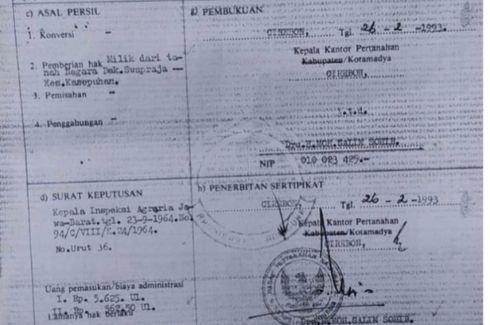 c) ASAL PERSIL
1. Konversi -
2. Pemberian hak Milik dari ta-
nah Negara Bek.Swapraja --
Kes.Kasepuhan.
3. Pemisahan -
4. Penggabungan -
g) PEMBUKUAN
CIREBON, Tgl. 26 - 2 -1993.
Kepala Kantor Pertanahan
Kabupaten/Kotamadya
CIREBON,
t.t.d.
Drs.H.MOH.SALIM
NIP 010 083 429.-
d) SURAT KEPUTUSAN
Kepala Inspeksi Agraria Ja-
wa-Barat.tgl. 23-9-1964.No!
94/C/VIII/K.24/1964.
No.Urut 36.
Uang pemasukan/biaya administrasi
I. Rp. 5.625. Ul.
II. Rp. 562.50 Ul.
Lamanya hak berlaku
h) PENERBITAN SERTIPIKAT
CIREBON, Tgl. 26 - 2 -1993
Kepala Kantor Pertanahan
Kabupaten/Kotamadya
CIREBON,